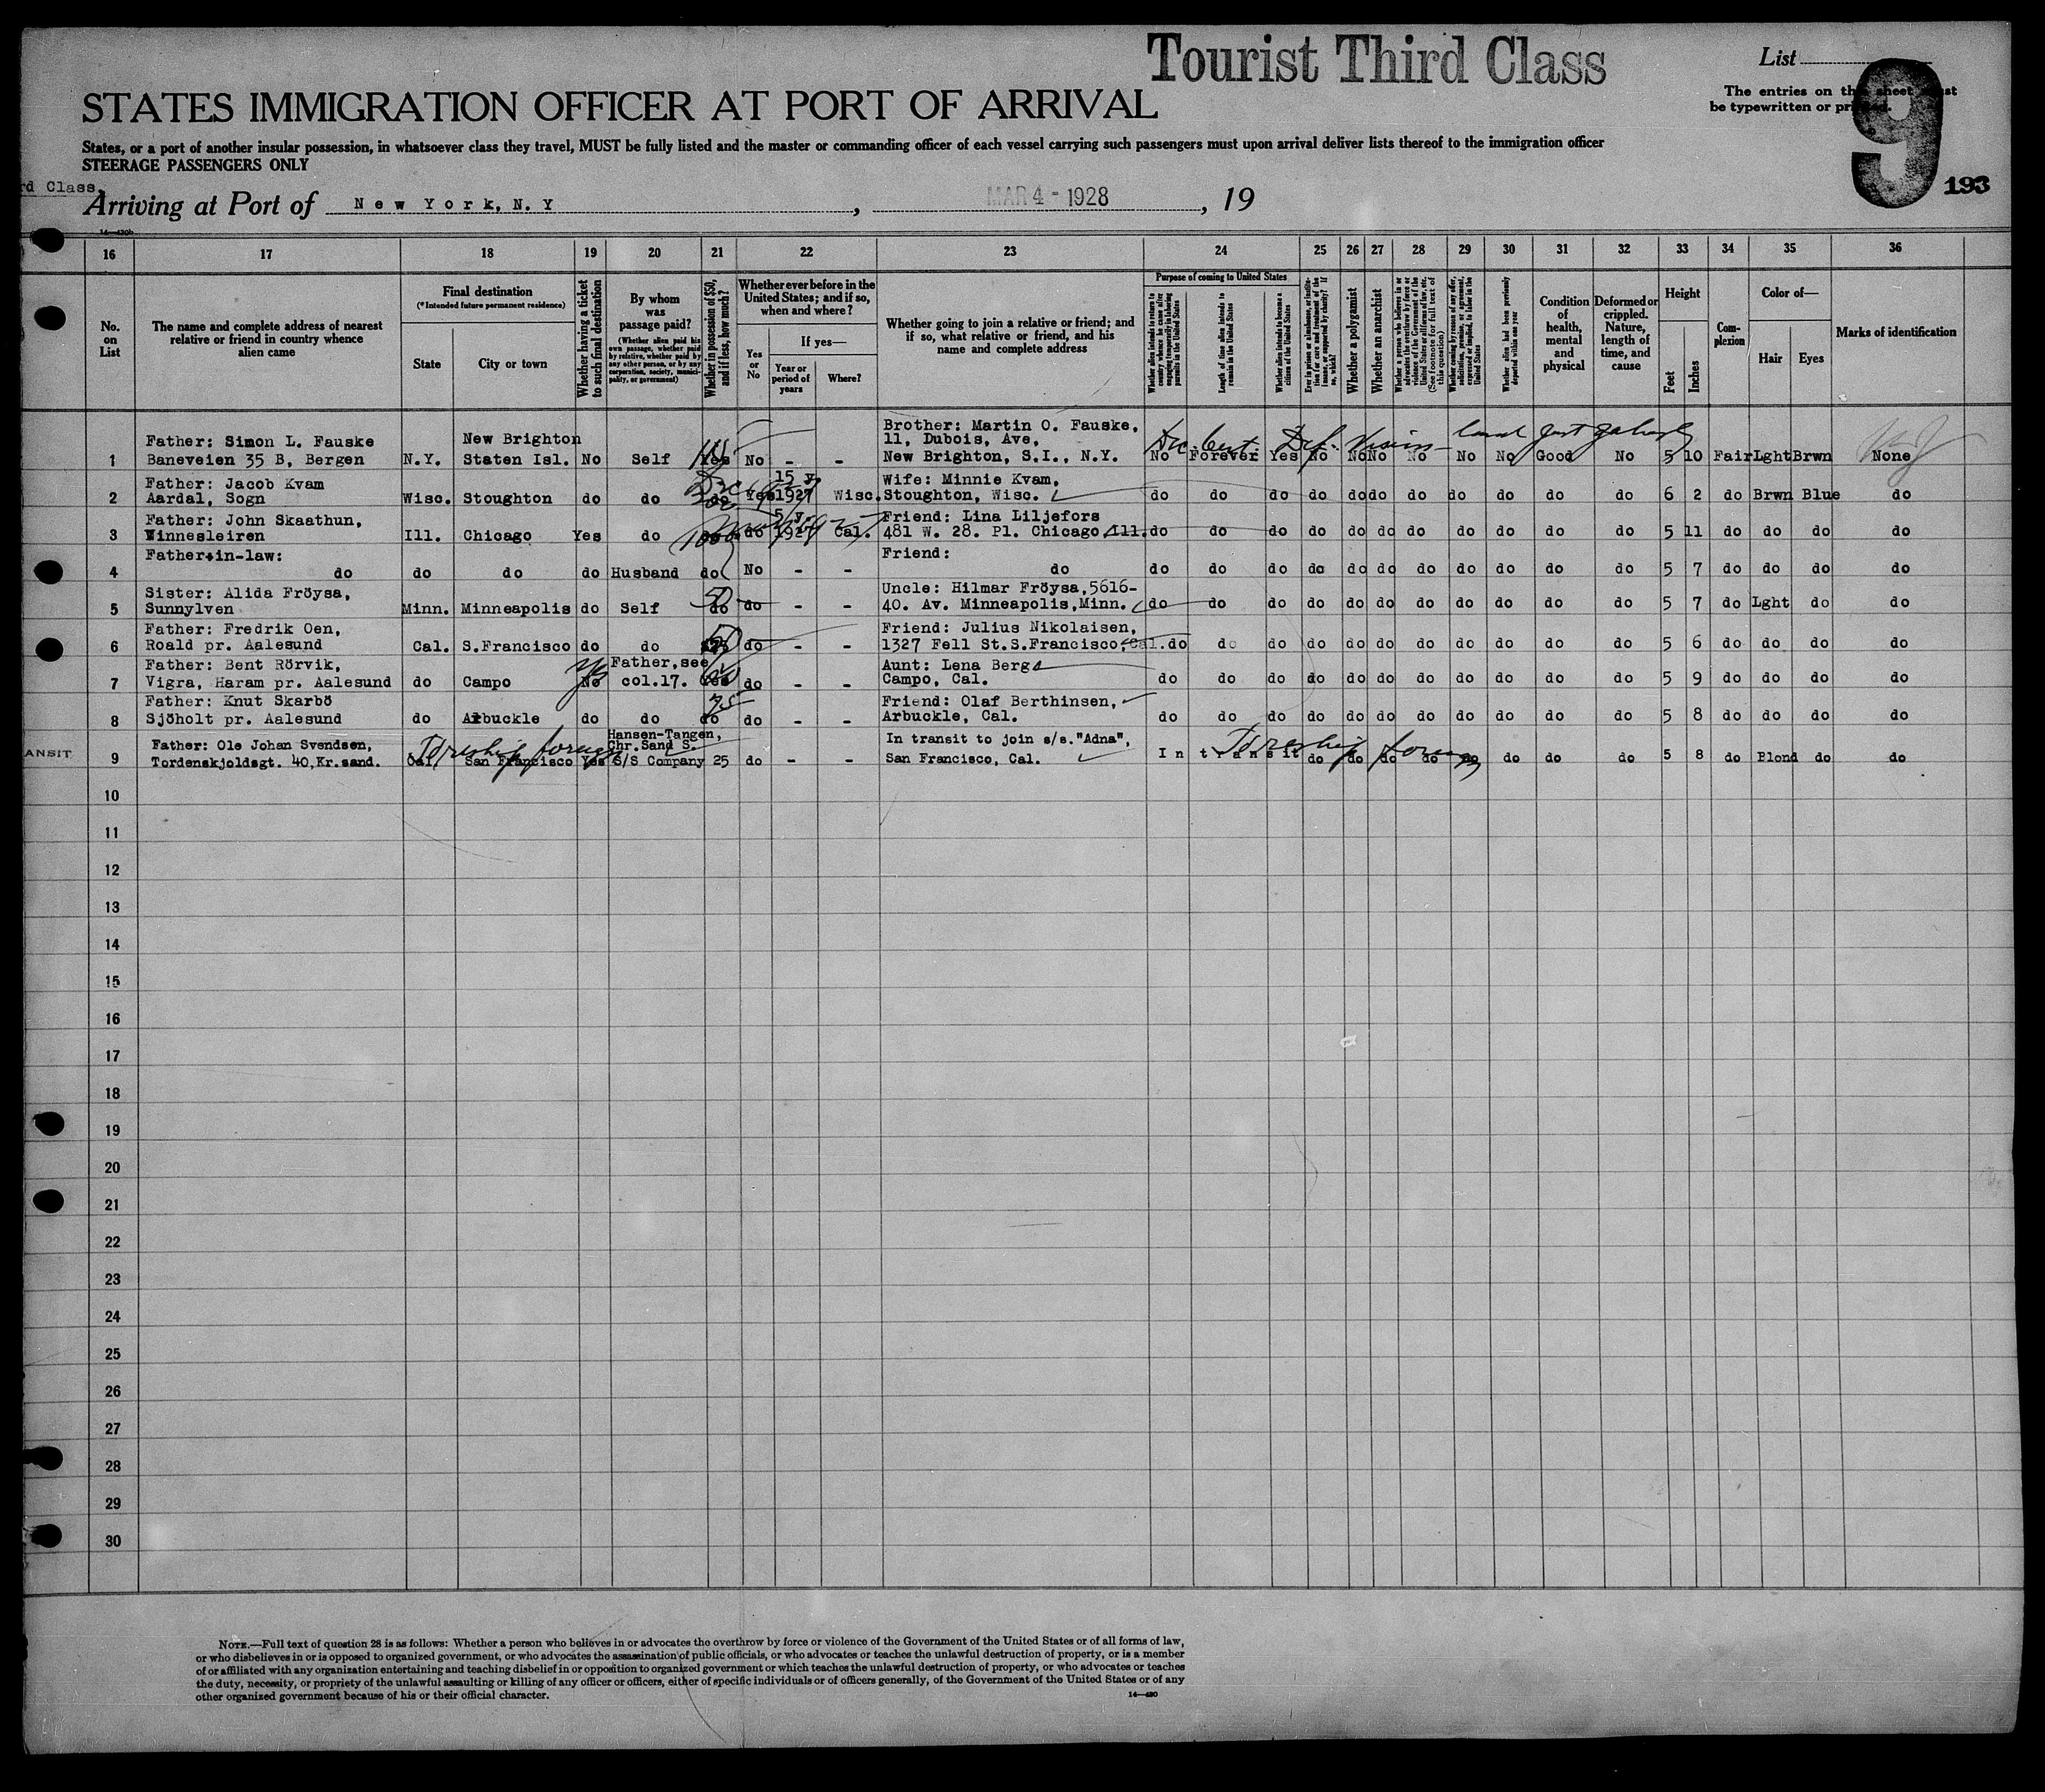 Tourist Third Class
List
The entries on this sheet must
be typewritten or printed.
9
193
STATES IMMIGRATION OFFICER AT PORT OF ARRIVAL
States, or a port of another insular possession, in whatsoever class they travel, MUST be fully listed and the master or commanding officer of each vessel carrying such passengers must upon arrival deliver lists thereof to the immigration officer
STEERAGE PASSENGERS ONLY
rd Class,
Arriving at Port of New York, N. Y , MAR 4 - 1928 , 19
14—430b
16 17 18 19 20 21 22 23 24 25 26 27 28 29 30 31 32 33 34 35 36
No. on List
The name and complete address of nearest relative or friend in country whence alien came
Final destination
(*Intended future permanent residence)
State
City or town
Whether having a ticket to such final destination
By whom was passage paid?
(Whether alien paid his own passage, whether paid by relative, whether paid by any other person, or by any corporation, society, municipality, or government)
Whether in possession of $50, and if less, how much?
Whether ever before in the United States; and if so, when and where?
Yes or No
If yes—
Year or period of years
Where?
Whether going to join a relative or friend; and if so, what relative or friend, and his name and complete address
Purpose of coming to United States
Whether alien intends to return to country whence he came after engaging temporarily in laboring pursuits in the United States
Length of time alien intends to remain in the United States
Whether alien intends to become a citizen of the United States
Ever in prison or almshouse, or institution for care and treatment of the insane, or supported by charity? If so, which?
Whether a polygamist
Whether an anarchist
Whether a person who believes in or advocates the overthrow by force or violence of the Government of the United States or all forms of law, etc. (See footnote for full text of this question)
Whether coming by reason of any offer, solicitation, promise, or agreement, expressed or implied, to labor in the United States
Whether alien had been previously deported within one year
Condition of health, mental and physical
Deformed or crippled. Nature, length of time, and cause
Height
Feet
Inches
Complexion
Color of—
Hair
Eyes
Marks of identification
1 Father: Simon L. Fauske New Brighton Brother: Martin O. Fauske,
11, Dubois, Ave,
Baneveien 35 B, Bergen N.Y. Staten Isl. No Self Yes No - - New Brighton, S.I., N.Y. No Forever Yes No No No No No No Good No 5 10 Fair Lght Brwn None
2 Father: Jacob Kvam 15 y Wife: Minnie Kvam,
Aardal, Sogn Wisc. Stoughton do do do Yes 1927 Wisc. Stoughton, Wisc. do do do do do do do do do do do 6 2 do Brwn Blue do
3 Father: John Skaathun, 5 y. Friend: Lina Liljefors
Vinnesleiren Ill. Chicago Yes do 1000 do 1927 Cal. 481 W. 28. Pl. Chicago, Ill. do do do do do do do do do do do 5 11 do do do do
4 Father-in-law: Friend:
do do do do Husband do No - - do do do do do do do do do do do do 5 7 do do do do
5 Sister: Alida Fröysa, 50 Uncle: Hilmar Fröysa, 5616-
Sunnylven Minn. Minneapolis do Self do do - - 40. Av. Minneapolis, Minn. do do do do do do do do do do do 5 7 do Lght do do
6 Father: Fredrik Oen, Friend: Julius Nikolaisen,
Roald pr. Aalesund Cal. S.Francisco do do do - - 1327 Fell St. S.Francisco, Cal. do do do do do do do do do do do 5 6 do do do do
7 Father: Bent Rörvik, Father, see Aunt: Lena Berge
Vigra, Haram pr. Aalesund do Campo No col.17. Yes do - - Campo, Cal. do do do do do do do do do do do 5 9 do do do do
8 Father: Knut Skarbö 75 Friend: Olaf Berthinsen,
Sjöholt pr. Aalesund do Arbuckle do do do do - - Arbuckle, Cal. do do do do do do do do do do do 5 8 do do do do
ANSIT
9 Father: Ole Johan Svendsen, Hansen-Tangen, Chr. Sand S. In transit to join s/s. "Adna",
Tordenskjoldsgt. 40, Kr.sand. Cal. San Francisco Yes S/S Company 25 do - - San Francisco, Cal. In transit do do do do do do do do 5 8 do Blond do do
To reship foreign
To reship foreign
10
11
12
13
14
15
16
17
18
19
20
21
22
23
24
25
26
27
28
29
30
NOTE.—Full text of question 28 is as follows: Whether a person who believes in or advocates the overthrow by force or violence of the Government of the United States or of all forms of law,
or who disbelieves in or is opposed to organized government, or who advocates the assassination of public officials, or who advocates or teaches the unlawful destruction of property, or is a member
of or affiliated with any organization entertaining and teaching disbelief in or opposition to organized government or which teaches the unlawful destruction of property, or who advocates or teaches
the duty, necessity, or propriety of the unlawful assaulting or killing of any officer or officers, either of specific individuals or of officers generally, of the Government of the United States or of any
other organized government because of his or their official character.
14—430